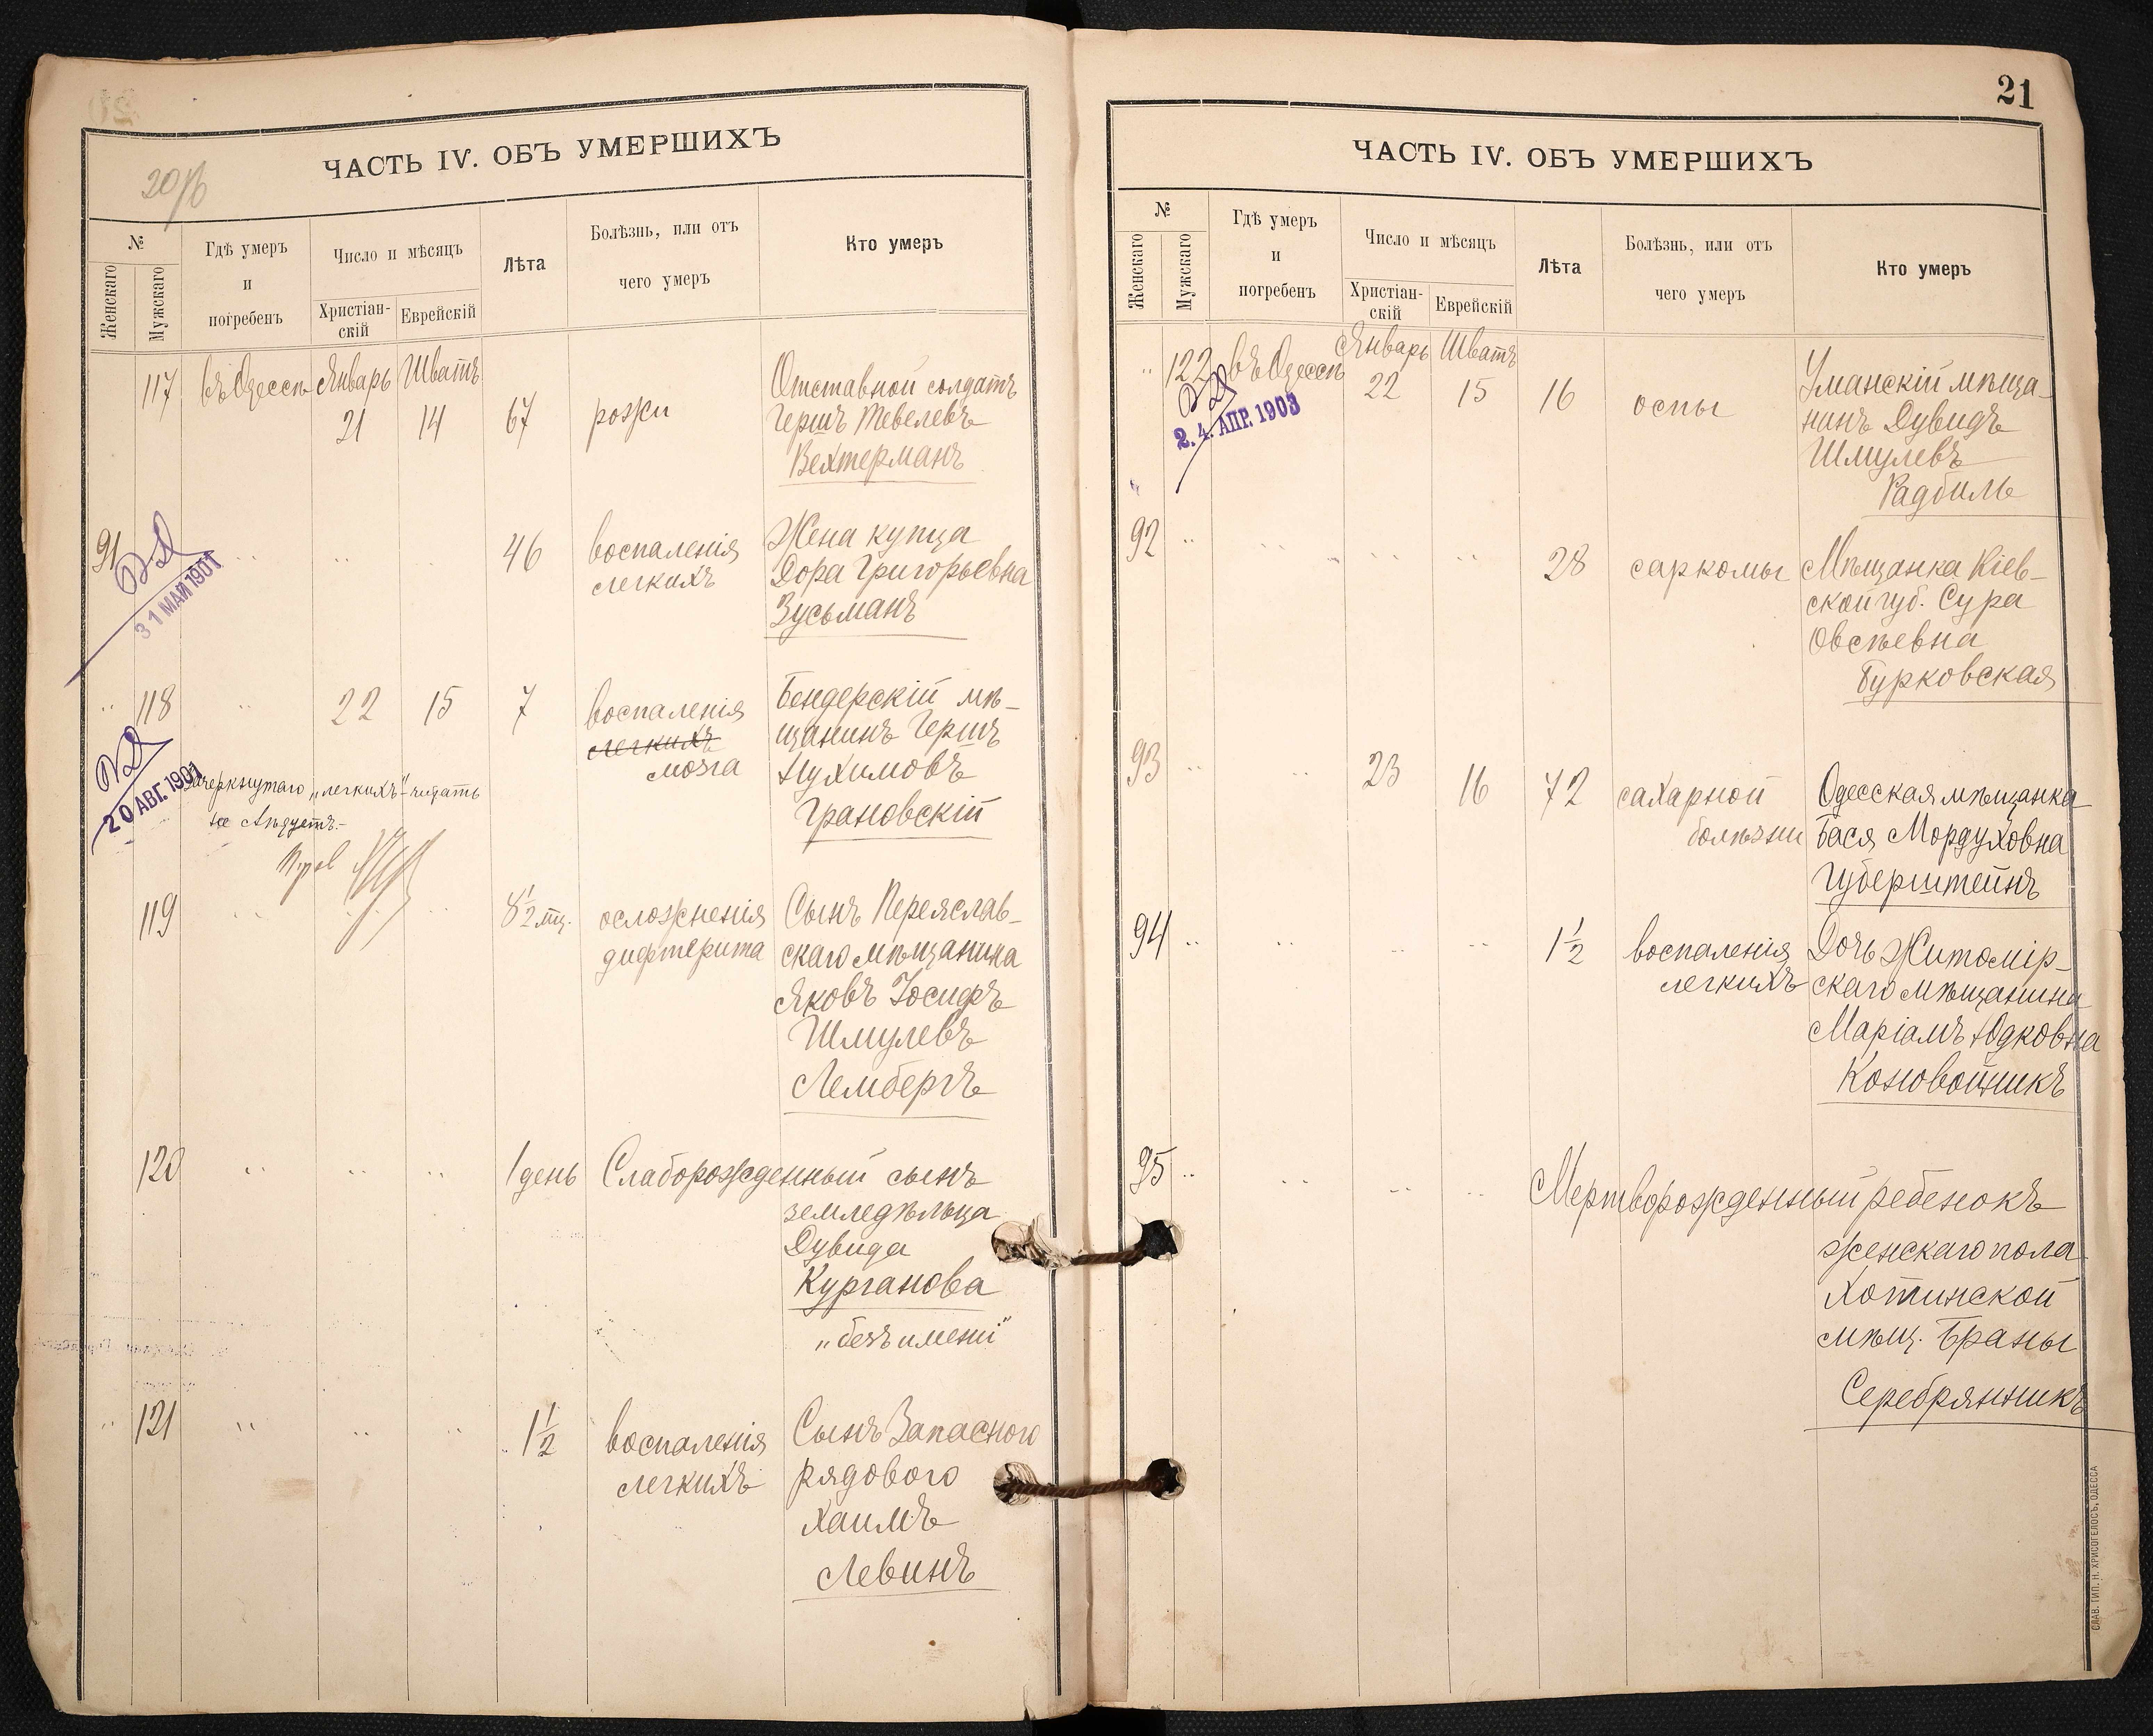 20/б
ЧАСТЬ IV. ОБЪ УМЕРШИХЪ
№
Женскаго
Мужскаго
Гдѣ умеръ
и
погребенъ
Число и мѣсяцъ
Христіан-
скій
Еврейскій
Лѣта
Болѣзнь, или отъ
чего умеръ
Кто умеръ
117 въ Одессѣ Январь Шватъ
21 14 67 рожи
Отставной солдатъ
Гершъ Тевелевъ
Вехтерманъ
91 " " 46 воспаленія
легкихъ
Жена купца
Дора Григорьевна
Зусьманъ
31 МАЙ 1901
" 118 " 22 15 7 воспаленія
легкихъ
мозга
Бендерскій мѣ-
щанинъ Гершъ
Нухимовъ
Грановскій
20 АВГ. 1901
Зачеркнутаго „легкихъ" читать
не слѣдуетъ.-
119 " " " 8 1/2 мц. осложненія
дифтерита
Сынъ Переяслав-
скаго мѣщанина
Яковъ Іосифъ
Шмулевъ
Лембергъ
120 " " " 1 день Слаборожденный сынъ
земледѣльца
Дувида
Курганова
„безъ имени"
" 121 " " " 1 1/2 воспаленія
легкихъ
Сынъ Запасного
рядового
Хаимъ
Левинъ
21
ЧАСТЬ IV. ОБЪ УМЕРШИХЪ
№
Женскаго
Мужскаго
Гдѣ умеръ
и
погребенъ
Число и мѣсяцъ
Христіан-
скій
Еврейскій
Лѣта
Болѣзнь, или отъ
чего умеръ
Кто умеръ
" 122 въ Одессѣ Январь Шватъ
22 15 16 оспы
Уманскій мѣща-
нинъ Дувидъ
Шмулевъ
Радбиль
2. 4. АПР. 1903
92 " " " " 28 саркомы
Мѣщанка Кіев-
ской губ. Сура
Овсѣевна
Бурковская
93 " " 23 16 72 сахарной
болѣзни
Одесская мѣщанка
Бася Мордуховна
Губерштейнъ
94 " " " " 1 1/2 воспаленія
легкихъ
Дочь Житомір-
скаго мѣщанина
Маріамъ Юдковна
Коновойникъ
95 " " " " Мертворожденный ребенокъ
женскаго пола
Хотинской
мѣщ. Браны
Серебрянникъ
СЛАВ. ТИП. Н. ХРИСОГЕЛОСЪ, ОДЕССА